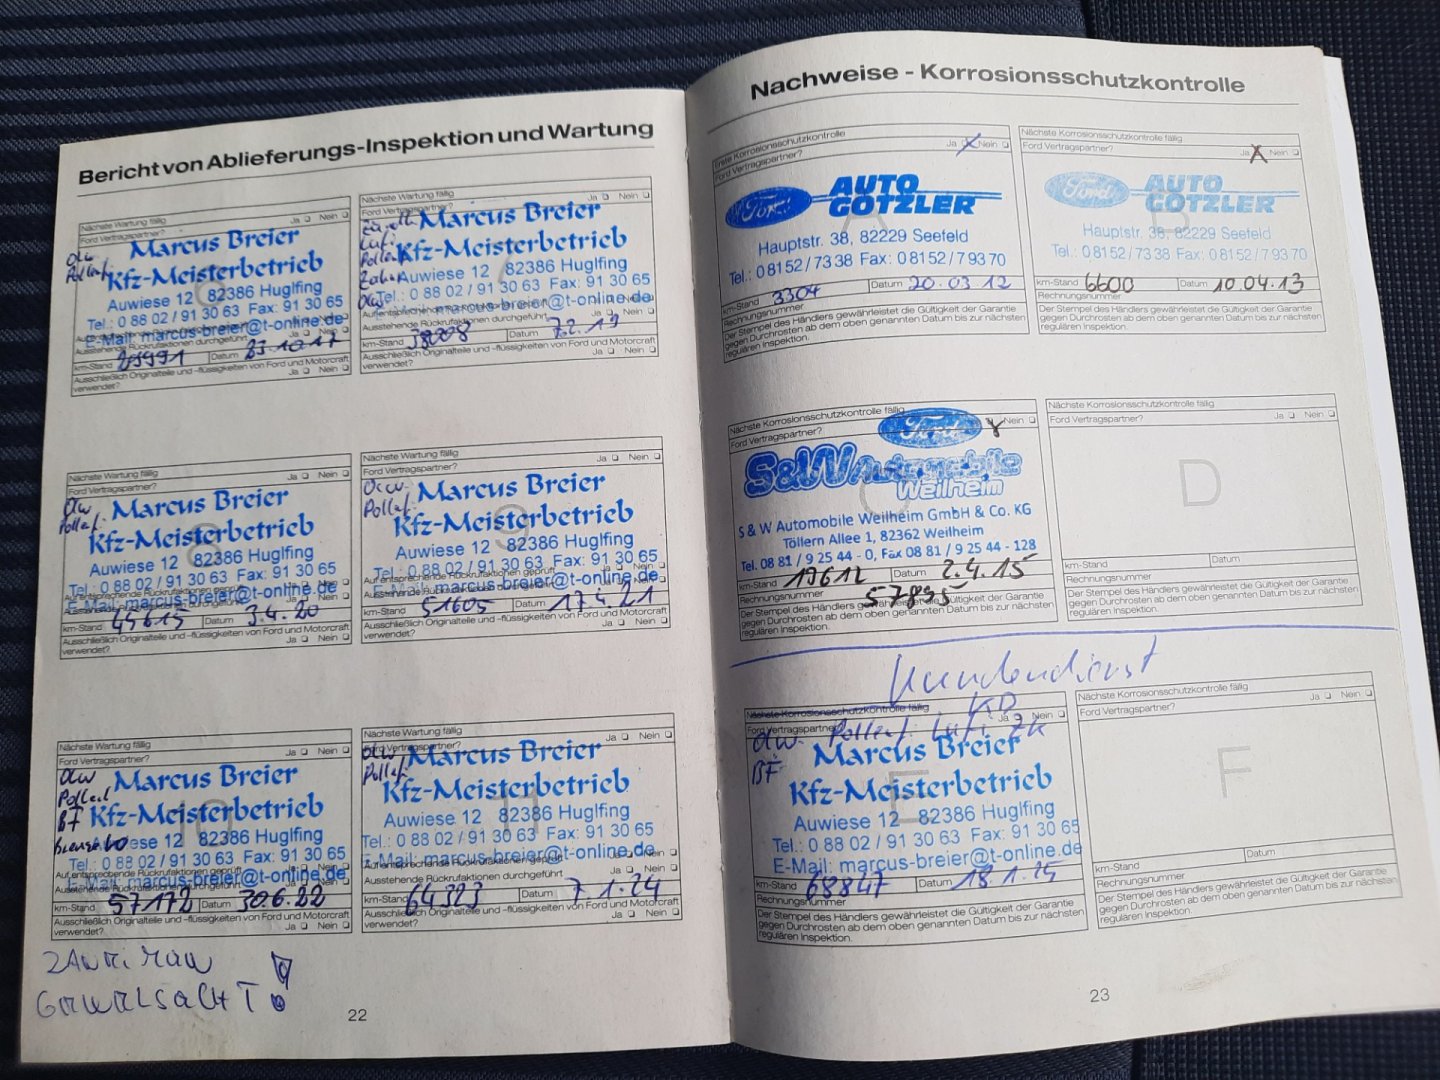 Bericht von Ablieferungs-Inspektion und Wartung
Nächste Wartung fällig
Ja Nein
Ford Vertragspartner?
ÖLW
Pollenf.
Marcus Breier
Kfz-Meisterbetrieb
Auwiese 12 82386 Huglfing
Tel.: 0 88 02 / 91 30 63 Fax: 91 30 65
E-Mail: marcus-breier@t-online.de
Ausstehende Rückrufaktionen durchgeführt
km-Stand Datum 23.10.17
Ausschließlich Originalteile und -flüssigkeiten von Ford und Motorcraft
verwendet? Ja Nein
Nächste Wartung fällig
Ja Nein
Ford Vertragspartner?
Marcus Breier
Kfz-Meisterbetrieb
Auwiese 12 82386 Huglfing
Tel.: 0 88 02 / 91 30 63 Fax: 91 30 65
marcus-breier@t-online.de
Ausstehende Rückrufaktionen durchgeführt
km-Stand 38008 Datum 7.2.19
Ausschließlich Originalteile und -flüssigkeiten von Ford und Motorcraft
verwendet? Ja Nein
Nächste Wartung fällig
Ja Nein
Ford Vertragspartner?
ÖLW
Pollenf.
8
Marcus Breier
Kfz-Meisterbetrieb
Auwiese 12 82386 Huglfing
Tel.: 0 88 02 / 91 30 63 Fax: 91 30 65
E-Mail: marcus-breier@t-online.de
km-Stand 45615 Datum 3.4.20
Ausschließlich Originalteile und -flüssigkeiten von Ford und Motorcraft
verwendet? Ja Nein
Nächste Wartung fällig
Ja Nein
Ford Vertragspartner?
ÖLW
Pollenf.
9
Marcus Breier
Kfz-Meisterbetrieb
Auwiese 12 82386 Huglfing
Tel.: 0 88 02 / 91 30 63 Fax: 91 30 65
E-Mail: marcus-breier@t-online.de
km-Stand 51605 Datum 17.4.21
Ausschließlich Originalteile und -flüssigkeiten von Ford und Motorcraft
verwendet? Ja Nein
Nächste Wartung fällig
Ja Nein
Ford Vertragspartner?
ÖLW
BF
10
Marcus Breier
Kfz-Meisterbetrieb
Auwiese 12 82386 Huglfing
Tel.: 0 88 02 / 91 30 63 Fax: 91 30 65
E-Mail: marcus-breier@t-online.de
km-Stand 57172 Datum 30.6.22
Ausschließlich Originalteile und -flüssigkeiten von Ford und Motorcraft
verwendet? Ja Nein
Nächste Wartung fällig
Ja Nein
Ford Vertragspartner?
ÖLW
Pollenf.
11
Marcus Breier
Kfz-Meisterbetrieb
Auwiese 12 82386 Huglfing
Tel.: 0 88 02 / 91 30 63 Fax: 91 30 65
E-Mail: marcus-breier@t-online.de
Auf entsprechende Rückrufaktionen geprüft
Ausstehende Rückrufaktionen durchgeführt
km-Stand 64323 Datum 7.1.24
Ausschließlich Originalteile und -flüssigkeiten von Ford und Motorcraft
verwendet? Ja Nein
22
Nachweise - Korrosionsschutzkontrolle
Erste Korrosionsschutzkontrolle
Ja Nein
Ford Vertragspartner?
A
Ford AUTO
GOTZLER
Hauptstr. 38, 82229 Seefeld
Tel.: 0 81 52 / 73 38 Fax: 0 81 52 / 7 93 70
km-Stand 3304 Datum 20.03.12
Rechnungsnummer
Der Stempel des Händlers gewährleistet die Gültigkeit der Garantie
gegen Durchrosten ab dem oben genannten Datum bis zur nächsten
regulären Inspektion.
Nächste Korrosionsschutzkontrolle fällig
Ja Nein
Ford Vertragspartner?
B
Ford AUTO
GOTZLER
Hauptstr. 38, 82229 Seefeld
Tel.: 0 81 52 / 73 38 Fax: 0 81 52 / 7 93 70
km-Stand 6600 Datum 10.04.13
Rechnungsnummer
Der Stempel des Händlers gewährleistet die Gültigkeit der Garantie
gegen Durchrosten ab dem oben genannten Datum bis zur nächsten
regulären Inspektion.
Nächste Korrosionsschutzkontrolle fällig
Nein
Ford Vertragspartner?
C
Ford
S&W Automobile
Weilheim
S & W Automobile Weilheim GmbH & Co. KG
Töllern Allee 1, 82362 Weilheim
Tel. 08 81 / 9 25 44 - 0, Fax 08 81 / 9 25 44 - 128
km-Stand 19612 Datum 2.4.15
Rechnungsnummer 57895
Der Stempel des Händlers gewährleistet die Gültigkeit der Garantie
gegen Durchrosten ab dem oben genannten Datum bis zur nächsten
regulären Inspektion.
Nächste Korrosionsschutzkontrolle fällig
Ja Nein
Ford Vertragspartner?
D
km-Stand Datum
Rechnungsnummer
Der Stempel des Händlers gewährleistet die Gültigkeit der Garantie
gegen Durchrosten ab dem oben genannten Datum bis zur nächsten
regulären Inspektion.
Kundendienst
KD
Nächste Korrosionsschutzkontrolle fällig
Ja Nein
Ford Vertragspartner?
ÖLW. Pollenf. Lufi ZK
BF
E
Marcus Breier
Kfz-Meisterbetrieb
Auwiese 12 82386 Huglfing
Tel.: 0 88 02 / 91 30 63 Fax: 91 30 65
E-Mail: marcus-breier@t-online.de
km-Stand 68847 Datum 18.1.25
Rechnungsnummer
Der Stempel des Händlers gewährleistet die Gültigkeit der Garantie
gegen Durchrosten ab dem oben genannten Datum bis zur nächsten
regulären Inspektion.
Nächste Korrosionsschutzkontrolle fällig
Ja Nein
Ford Vertragspartner?
F
km-Stand Datum
Rechnungsnummer
Der Stempel des Händlers gewährleistet die Gültigkeit der Garantie
gegen Durchrosten ab dem oben genannten Datum bis zur nächsten
regulären Inspektion.
23